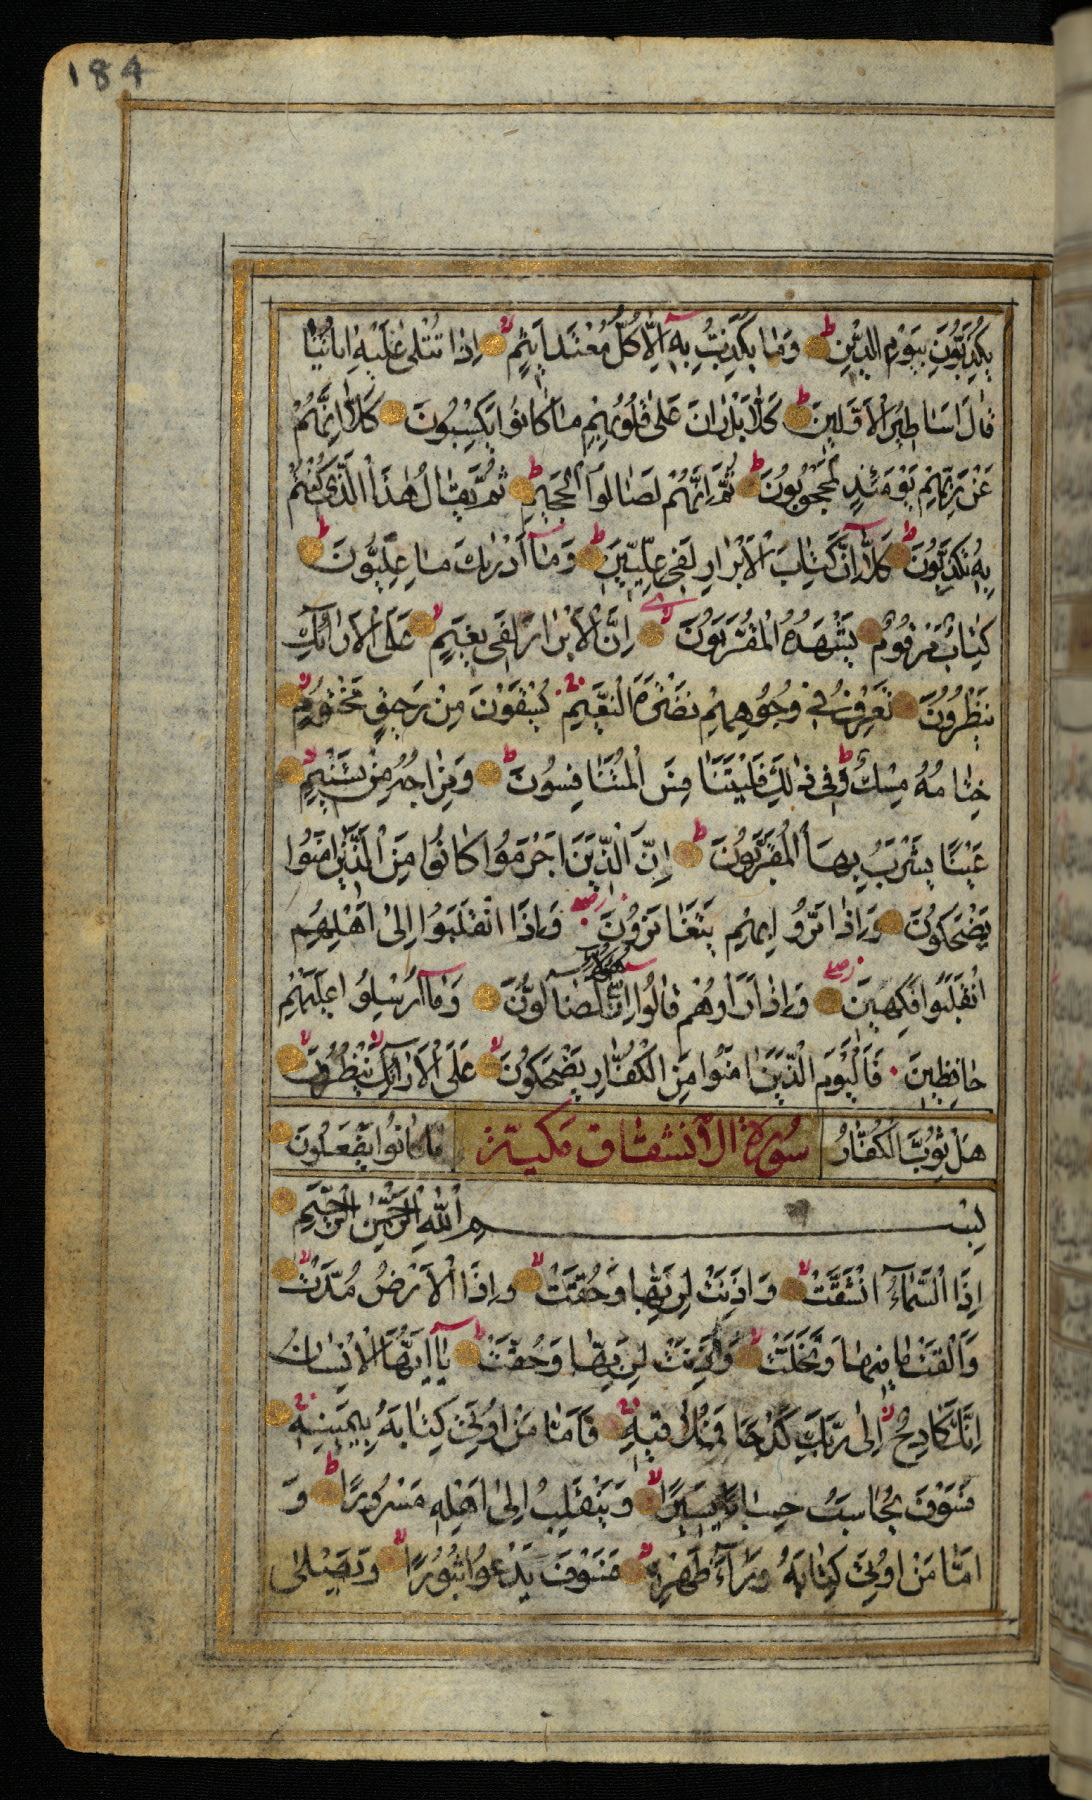 184
يُكَذِّبُونَ بِيَوْمِ الدِّينِ وَمَا يُكَذِّبُ بِهِ اِلَّا كُلُّ مُعْتَدٍ اَثِيمٍ اِذَا تُتْلٰى عَلَيْهِ اٰيَاتُنَا
قَالَ اَسَاطِيرُ الْاَوَّلِينَ كَلَّا بَلْ رَانَ عَلٰى قُلُوبِهِمْ مَا كَانُوا يَكْسِبُونَ كَلَّا اِنَّهُمْ
عَنْ رَبِّهِمْ يَوْمَئِذٍ لَمَحْجُوبُونَ ثُمَّ اِنَّهُمْ لَصَالُوا الْجَحِيمِ ثُمَّ يُقَالُ هٰذَا الَّذِى كُنْتُمْ
بِهِ تُكَذِّبُونَ كَلَّا اِنَّ كِتَابَ الْاَبْرَارِ لَفِى عِلِّيِّينَ وَمَا اَدْرٰيكَ مَا عِلِّيُّونَ
كِتَابٌ مَرْقُومٌ يَشْهَدُهُ الْمُقَرَّبُونَ اِنَّ الْاَبْرَارَ لَفِى نَعِيمٍ عَلَى الْاَرَائِكِ
يَنْظُرُونَ تَعْرِفُ فِى وُجُوهِهِمْ نَضْرَةَ النَّعِيمِ يُسْقَوْنَ مِنْ رَحِيقٍ مَخْتُومٍ
خِتَامُهُ مِسْكٌ وَفِى ذٰلِكَ فَلْيَتَنَافَسِ الْمُتَنَافِسُونَ وَمِزَاجُهُ مِنْ تَسْنِيمٍ
عَيْنًا يَشْرَبُ بِهَا الْمُقَرَّبُونَ اِنَّ الَّذِينَ اَجْرَمُوا كَانُوا مِنَ الَّذِينَ اٰمَنُوا
يَضْحَكُونَ وَاِذَا مَرُّوا بِهِمْ يَتَغَامَزُونَ وَاِذَا انْقَلَبُوا اِلٰى اَهْلِهِمُ
انْقَلَبُوا فَكِهِينَ وَاِذَا رَاَوْهُمْ قَالُوا اِنَّ هٰؤُلَاءِ لَضَالُّونَ وَمَا اُرْسِلُوا عَلَيْهِمْ
حَافِظِينَ فَالْيَوْمَ الَّذِينَ اٰمَنُوا مِنَ الْكُفَّارِ يَضْحَكُونَ عَلَى الْاَرَائِكِ يَنْظُرُونَ
هَلْ ثُوِّبَ الْكُفَّارُ سورة الانشقاق مكية مَا كَانُوا يَفْعَلُونَ
بِسْمِ اللّٰهِ الرَّحْمٰنِ الرَّحِيمِ
اِذَا السَّمَاءُ انْشَقَّتْ وَاَذِنَتْ لِرَبِّهَا وَحُقَّتْ وَاِذَا الْاَرْضُ مُدَّتْ
وَاَلْقَتْ مَا فِيهَا وَتَخَلَّتْ وَاَذِنَتْ لِرَبِّهَا وَحُقَّتْ يَا اَيُّهَا الْاِنْسَانُ
اِنَّكَ كَادِحٌ اِلٰى رَبِّكَ كَدْحًا فَمُلَاقِيهِ فَاَمَّا مَنْ اُوتِىَ كِتَابَهُ بِيَمِينِهِ
فَسَوْفَ يُحَاسَبُ حِسَابًا يَسِيرًا وَيَنْقَلِبُ اِلٰى اَهْلِهِ مَسْرُورًا وَ
اَمَّا مَنْ اُوتِىَ كِتَابَهُ وَرَاءَ ظَهْرِهِ فَسَوْفَ يَدْعُوا ثُبُورًا وَيَصْلٰى